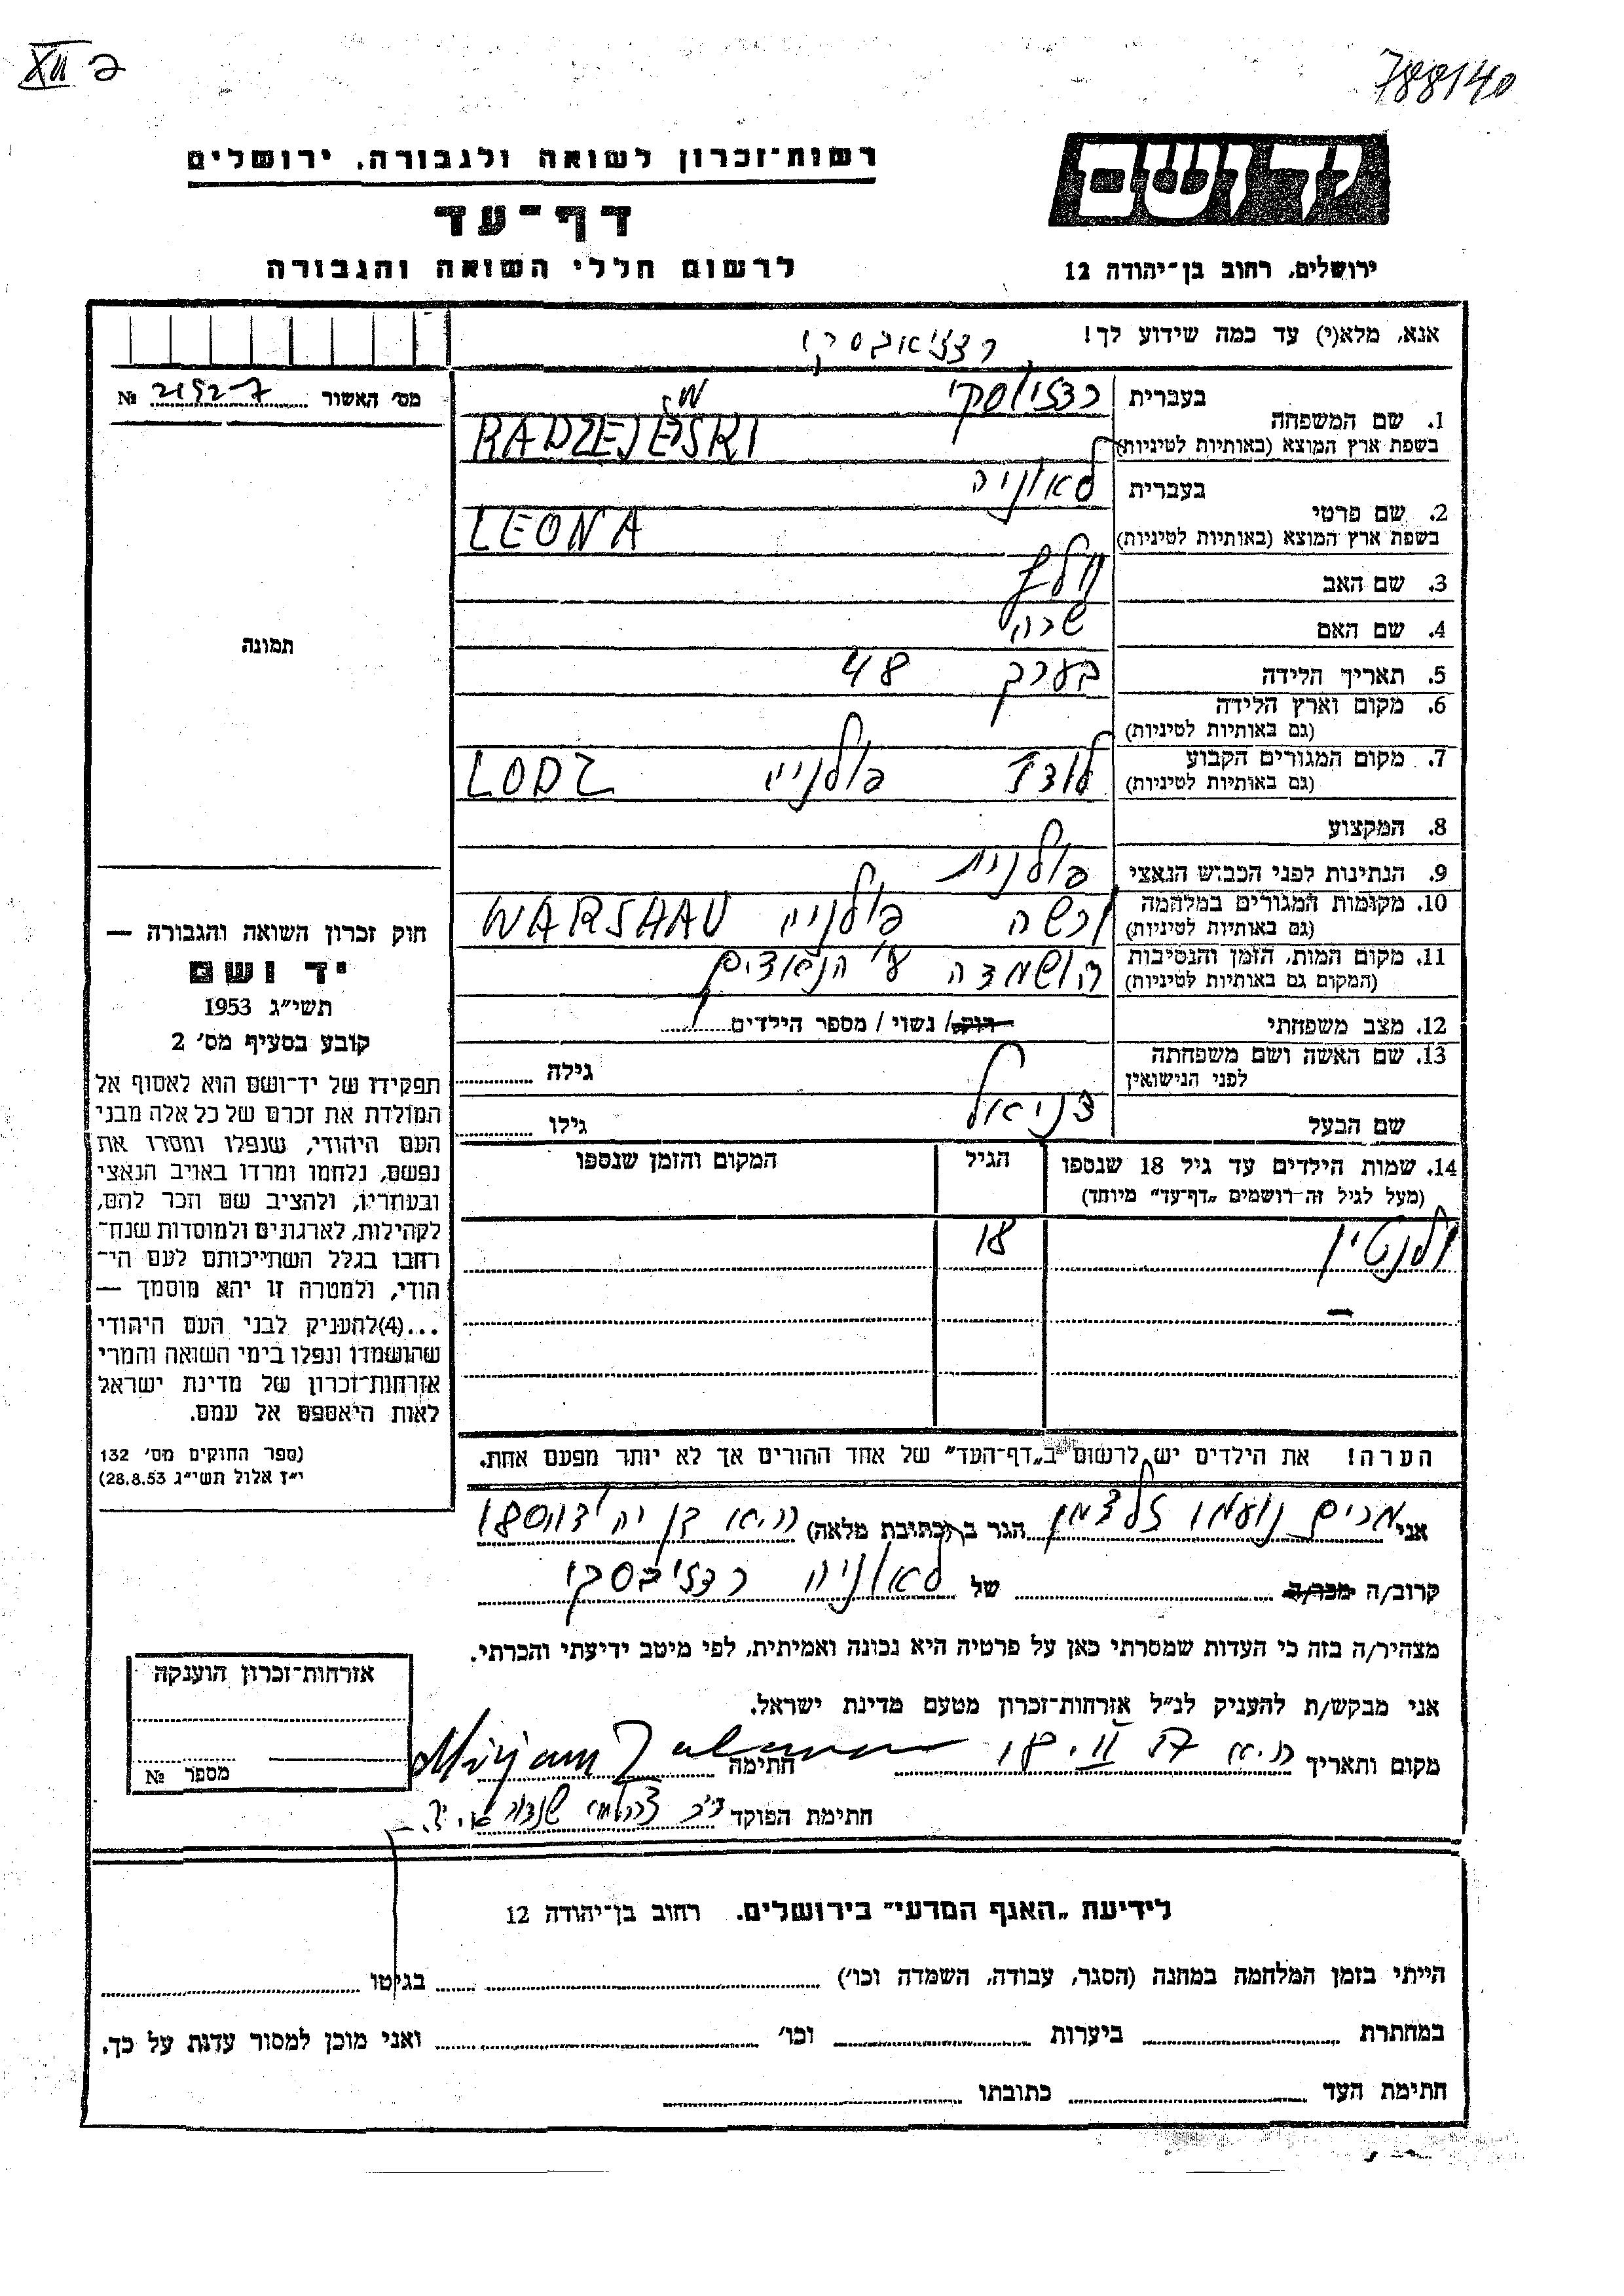 XII 2
788140
יד ושם
רשות־זכרון לשואה ולגבורה, ירושלים
דף־עד
לרשום חללי השואה והגבורה
ירושלים, רחוב בן־יהודה 12
אנא, מלא(י) עד כמה שידוע לך!
מס' האשור № 21527
1. שם המשפחה
בעברית
בשפת ארץ המוצא (באותיות לטיניות)
RADZEJEWSKI
2. שם פרטי
בעברית לאוניה
בשפת ארץ המוצא (באותיות לטיניות) LEONA
3. שם האב וולף
4. שם האם שרה
5. תאריך הלידה בערך 48
6. מקום וארץ הלידה
(גם באותיות לטיניות)
7. מקום המגורים הקבוע לודז פולנייה LODZ
(גם באותיות לטיניות)
8. המקצוע
9. הנתינות לפני הכבוש הנאצי פולנית
10. מקומות המגורים במלחמה ורשה פולנייה WARSHAU
(גם באותיות לטיניות)
11. מקום המות, הזמן והנסיבות הושמדה ע"י הנאצים
(המקום גם באותיות לטיניות)
12. מצב משפחתי רוק / נשוי / מספר הילדים
13. שם האשה ושם משפחתה
לפני הנישואין
גילה
שם הבעל דניאל גילו
14. שמות הילדים עד גיל 18 שנספו
(מעל לגיל זה רושמים „דף־עד" מיוחד)
הגיל
המקום והזמן שנספו
ולנטין 18
תמונה
חוק זכרון השואה והגבורה —
יד ושם
תשי״ג 1953
קובע בסעיף מס' 2
תפקידו של יד־ושם הוא לאסוף אל
המולדת את זכרם של כל אלה מבני
העם היהודי, שנפלו ומסרו את
נפשם, נלחמו ומרדו באויב הנאצי
ובעוזריו, ולהציב שם וזכר להם,
לקהילות, לארגונים ולמוסדות שנח־
רבו בגלל השתייכותם לעם הי־
הודי, ולמטרה זו יהא מוסמך —
...(4) להעניק לבני העם היהודי
שהושמדו ונפלו בימי השואה והמרי
אזרחות־זכרון של מדינת ישראל
לאות היאספם אל עמם.
(ספר החוקים מס' 132
י״ז אלול תשי״ג 28.8.53)
הערה! את הילדים יש לרשום ב„דף־העד" של אחד ההורים אך לא יותר מפעם אחת.
אני מרים נועמי זלצמן הגר ב (כתובת מלאה) ת.א.
קרוב/ה מכר/ה של לאוניה רדזיבסקי
מצהיר/ה בזה כי העדות שמסרתי כאן על פרטיה היא נכונה ואמיתית, לפי מיטב ידיעתי והכרתי.
אני מבקש/ת להעניק לנ״ל אזרחות־זכרון מטעם מדינת ישראל.
מקום ותאריך ת.א 18.II.57 חתימה
חתימת הפוקד
אזרחות־זכרון הוענקה
מספר №
לידיעת „האגף המדעי" בירושלים, רחוב בן־יהודה 12
הייתי בזמן המלחמה במחנה (הסגר, עבודה, השמדה וכו') בגיטו
במחתרת ביערות וכו' ואני מוכן למסור עדות על כך.
חתימת העד כתובתו